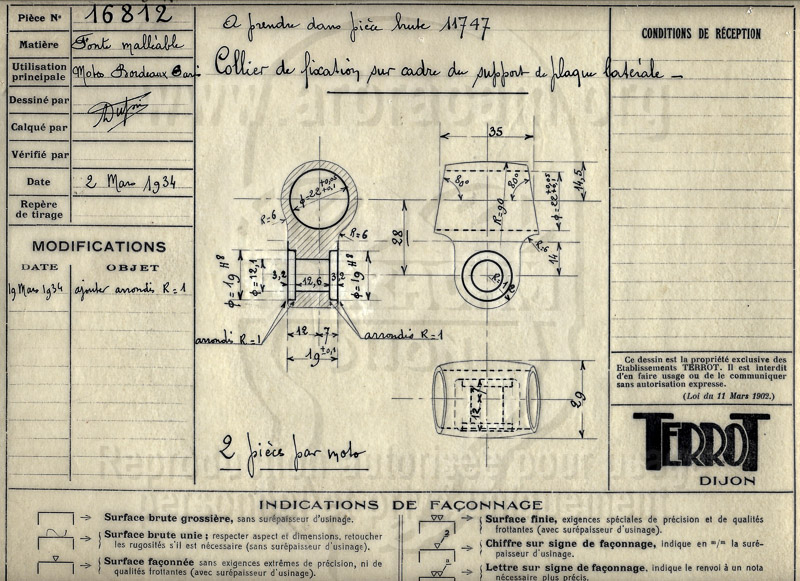 Pièce N° 16812
Matière Fonte malléable
Utilisation principale Moto Bordeaux Paris
Dessiné par
Calqué par
Vérifié par
Date 2 Mars 1934
Repère de tirage
MODIFICATIONS
DATE OBJET
19 Mars 1934 ajouter arrondis R=1
A prendre dans pièce brute 11747
Collier de fixation sur cadre du support de plaque latérale
CONDITIONS DE RÉCEPTION
35
80° 80°
R=90
14,5
R=6
R=6
28
14
R=6
ϕ=19 H8
3,2 12,6
ϕ=19 H8
arrondis R=1
arrondis R=1
12 7
19 ±0,1
29
2 pièces par moto
Ce dessin est la propriété exclusive des
Etablissements TERROT. Il est interdit
d'en faire usage ou de le communiquer
sans autorisation expresse.
(Loi du 11 Mars 1902.)
TERROT
DIJON
INDICATIONS DE FAÇONNAGE
Surface brute grossière, sans surépaisseur d'usinage.
Surface brute unie ; respecter aspect et dimensions, retoucher
les rugosités s'il est nécessaire (sans surépaisseur d'usinage).
Surface façonnée sans exigences extrêmes de précision, ni de
qualités frottantes (avec surépaisseur d'usinage).
Surface finie, exigences spéciales de précision et de qualités
frottantes (avec surépaisseur d'usinage).
Chiffre sur signe de façonnage, indique en m/m la suré-
paisseur d'usinage.
Lettre sur signe de façonnage, indique le renvoi à un nota
nécessaire plus précis.